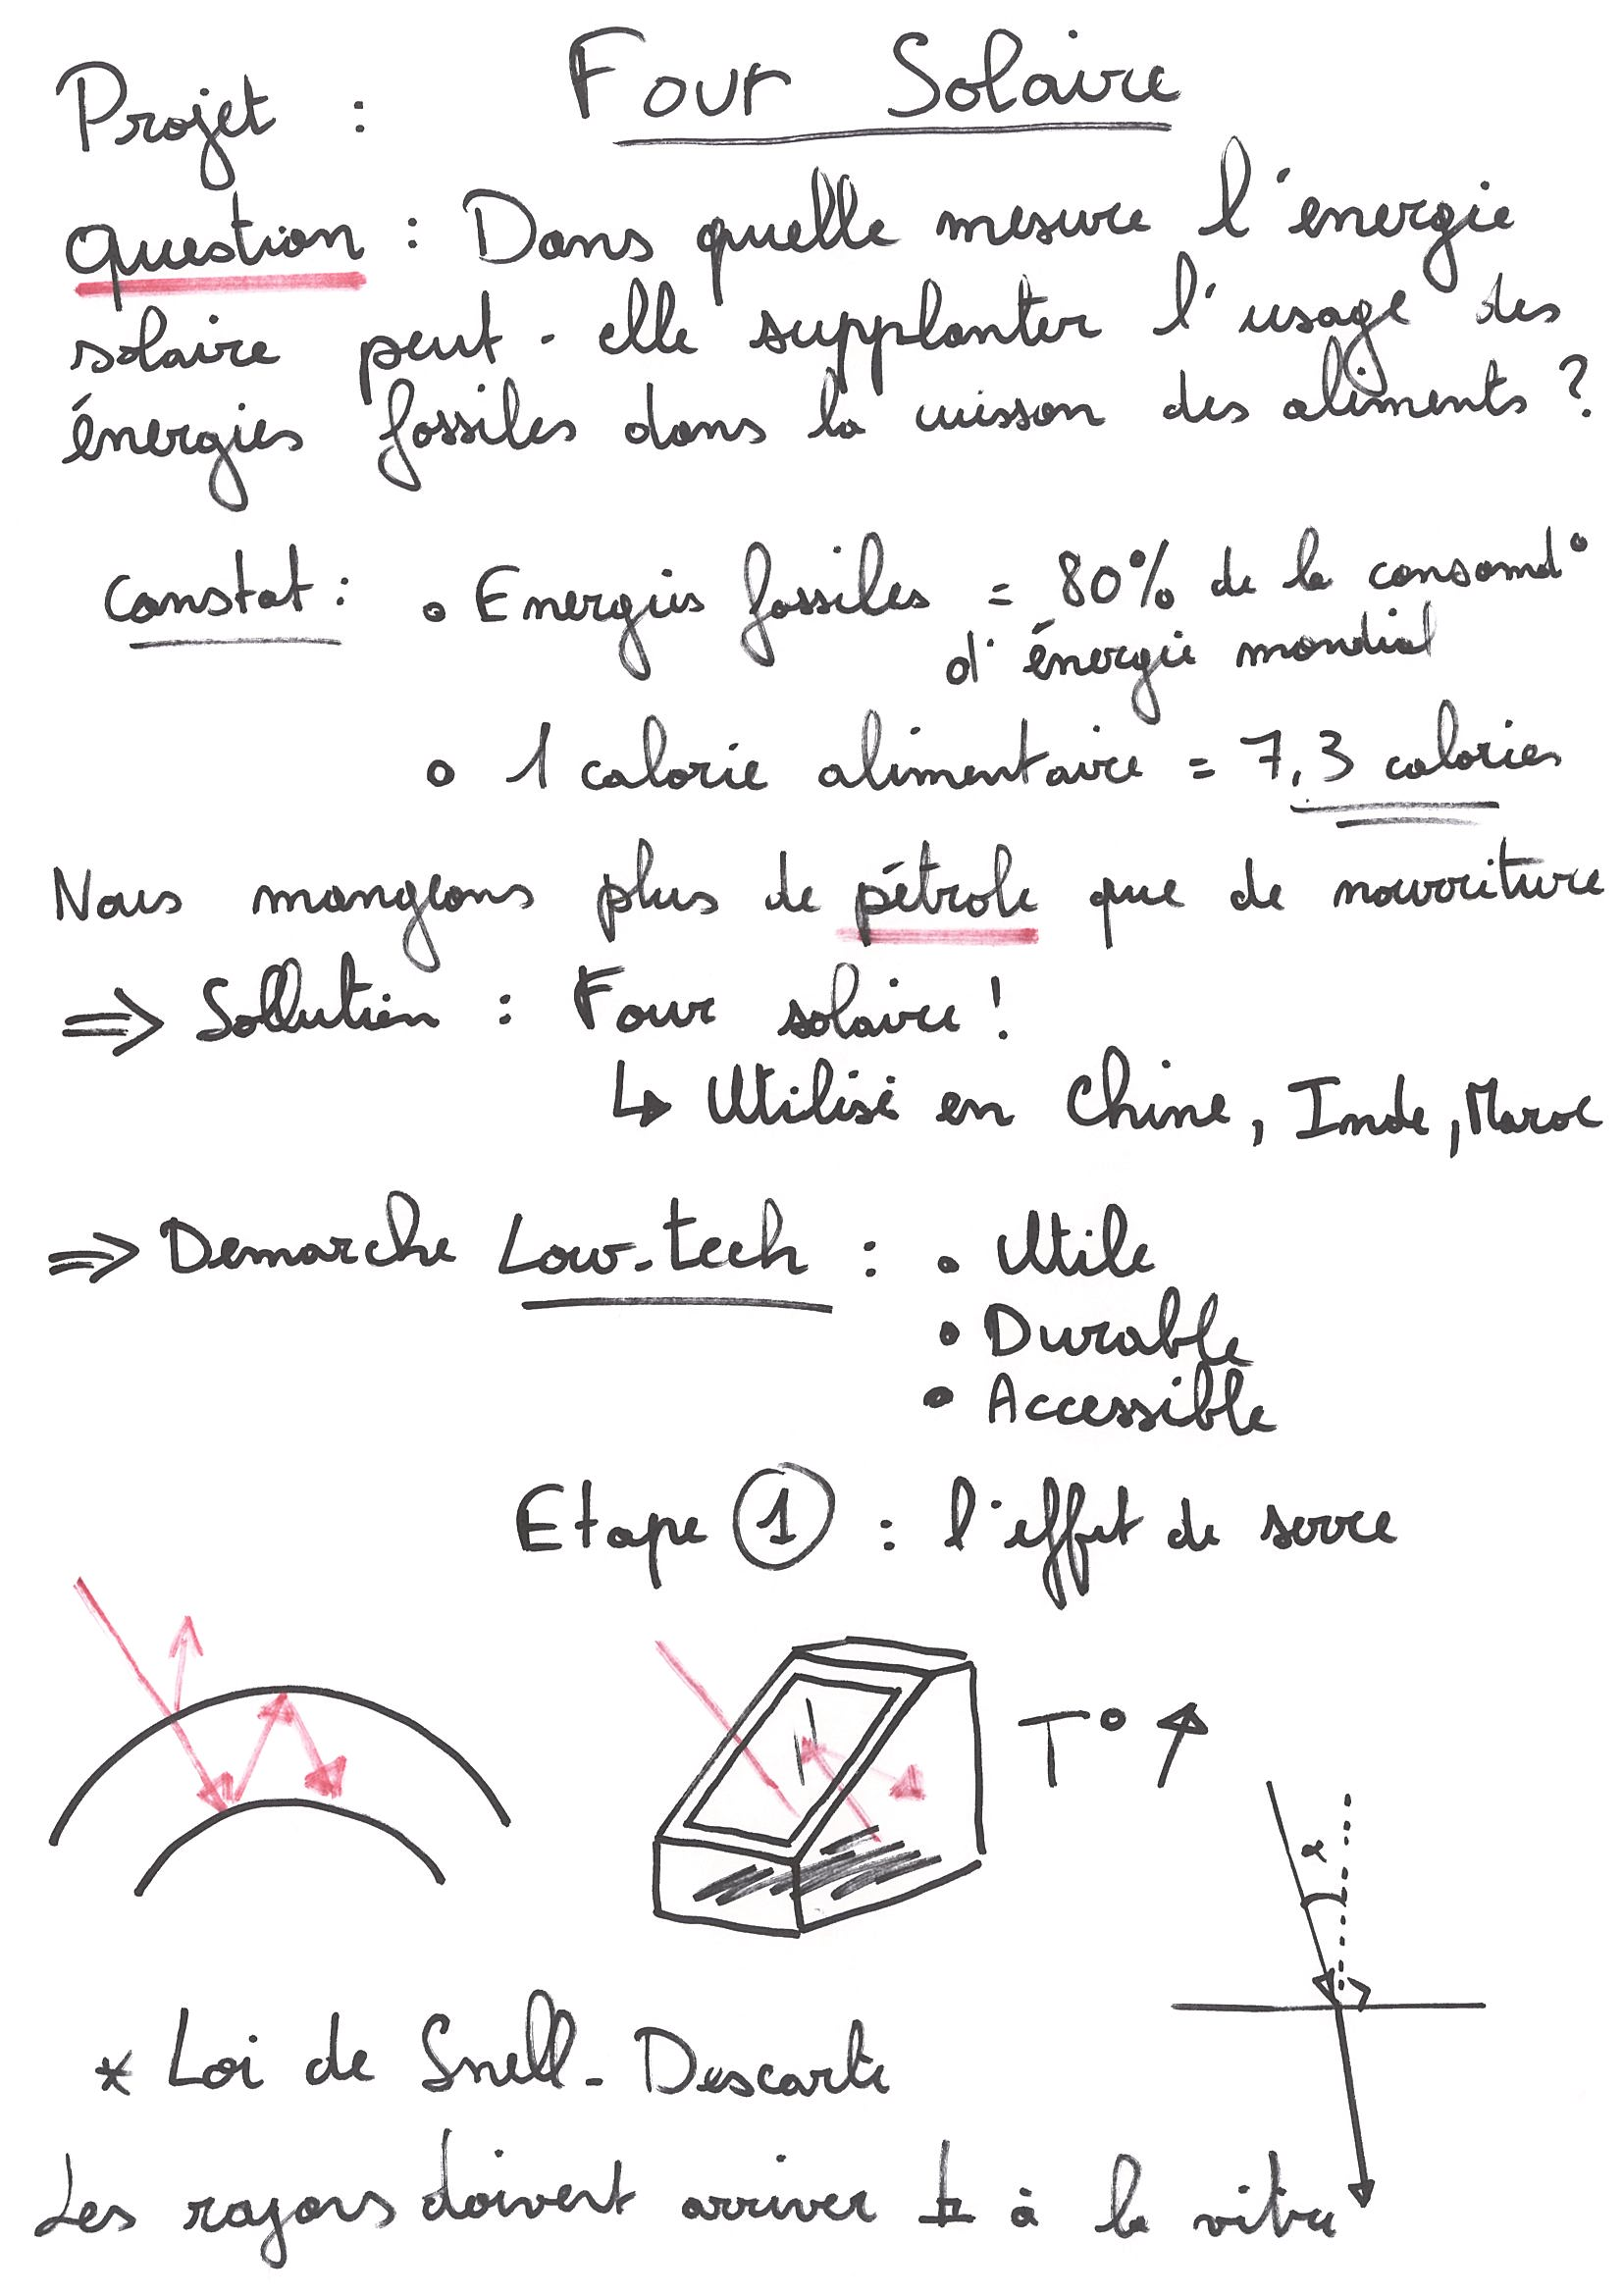 Projet : Four Solaire
Question : Dans quelle mesure l'énergie
solaire peut-elle supplanter l'usage des
énergies fossiles dans la cuisson des aliments ?
Constat : • Energies fossiles = 80% de la consomd°
d'énergie mondial
• 1 calorie alimentaire = 7,3 calories
Nous mangeons plus de pétrole que de nourriture
⇒ Sollution : Four solaire !
↳ Utilisé en Chine, Inde, Maroc
⇒ Demarche Low-tech : • Utile
• Durable
• Accessible
Etape 1 : l'effet de serre
T° ↗
α
* Loi de Snell-Descarte
Les rayons doivent arriver ⊥ à la vitre